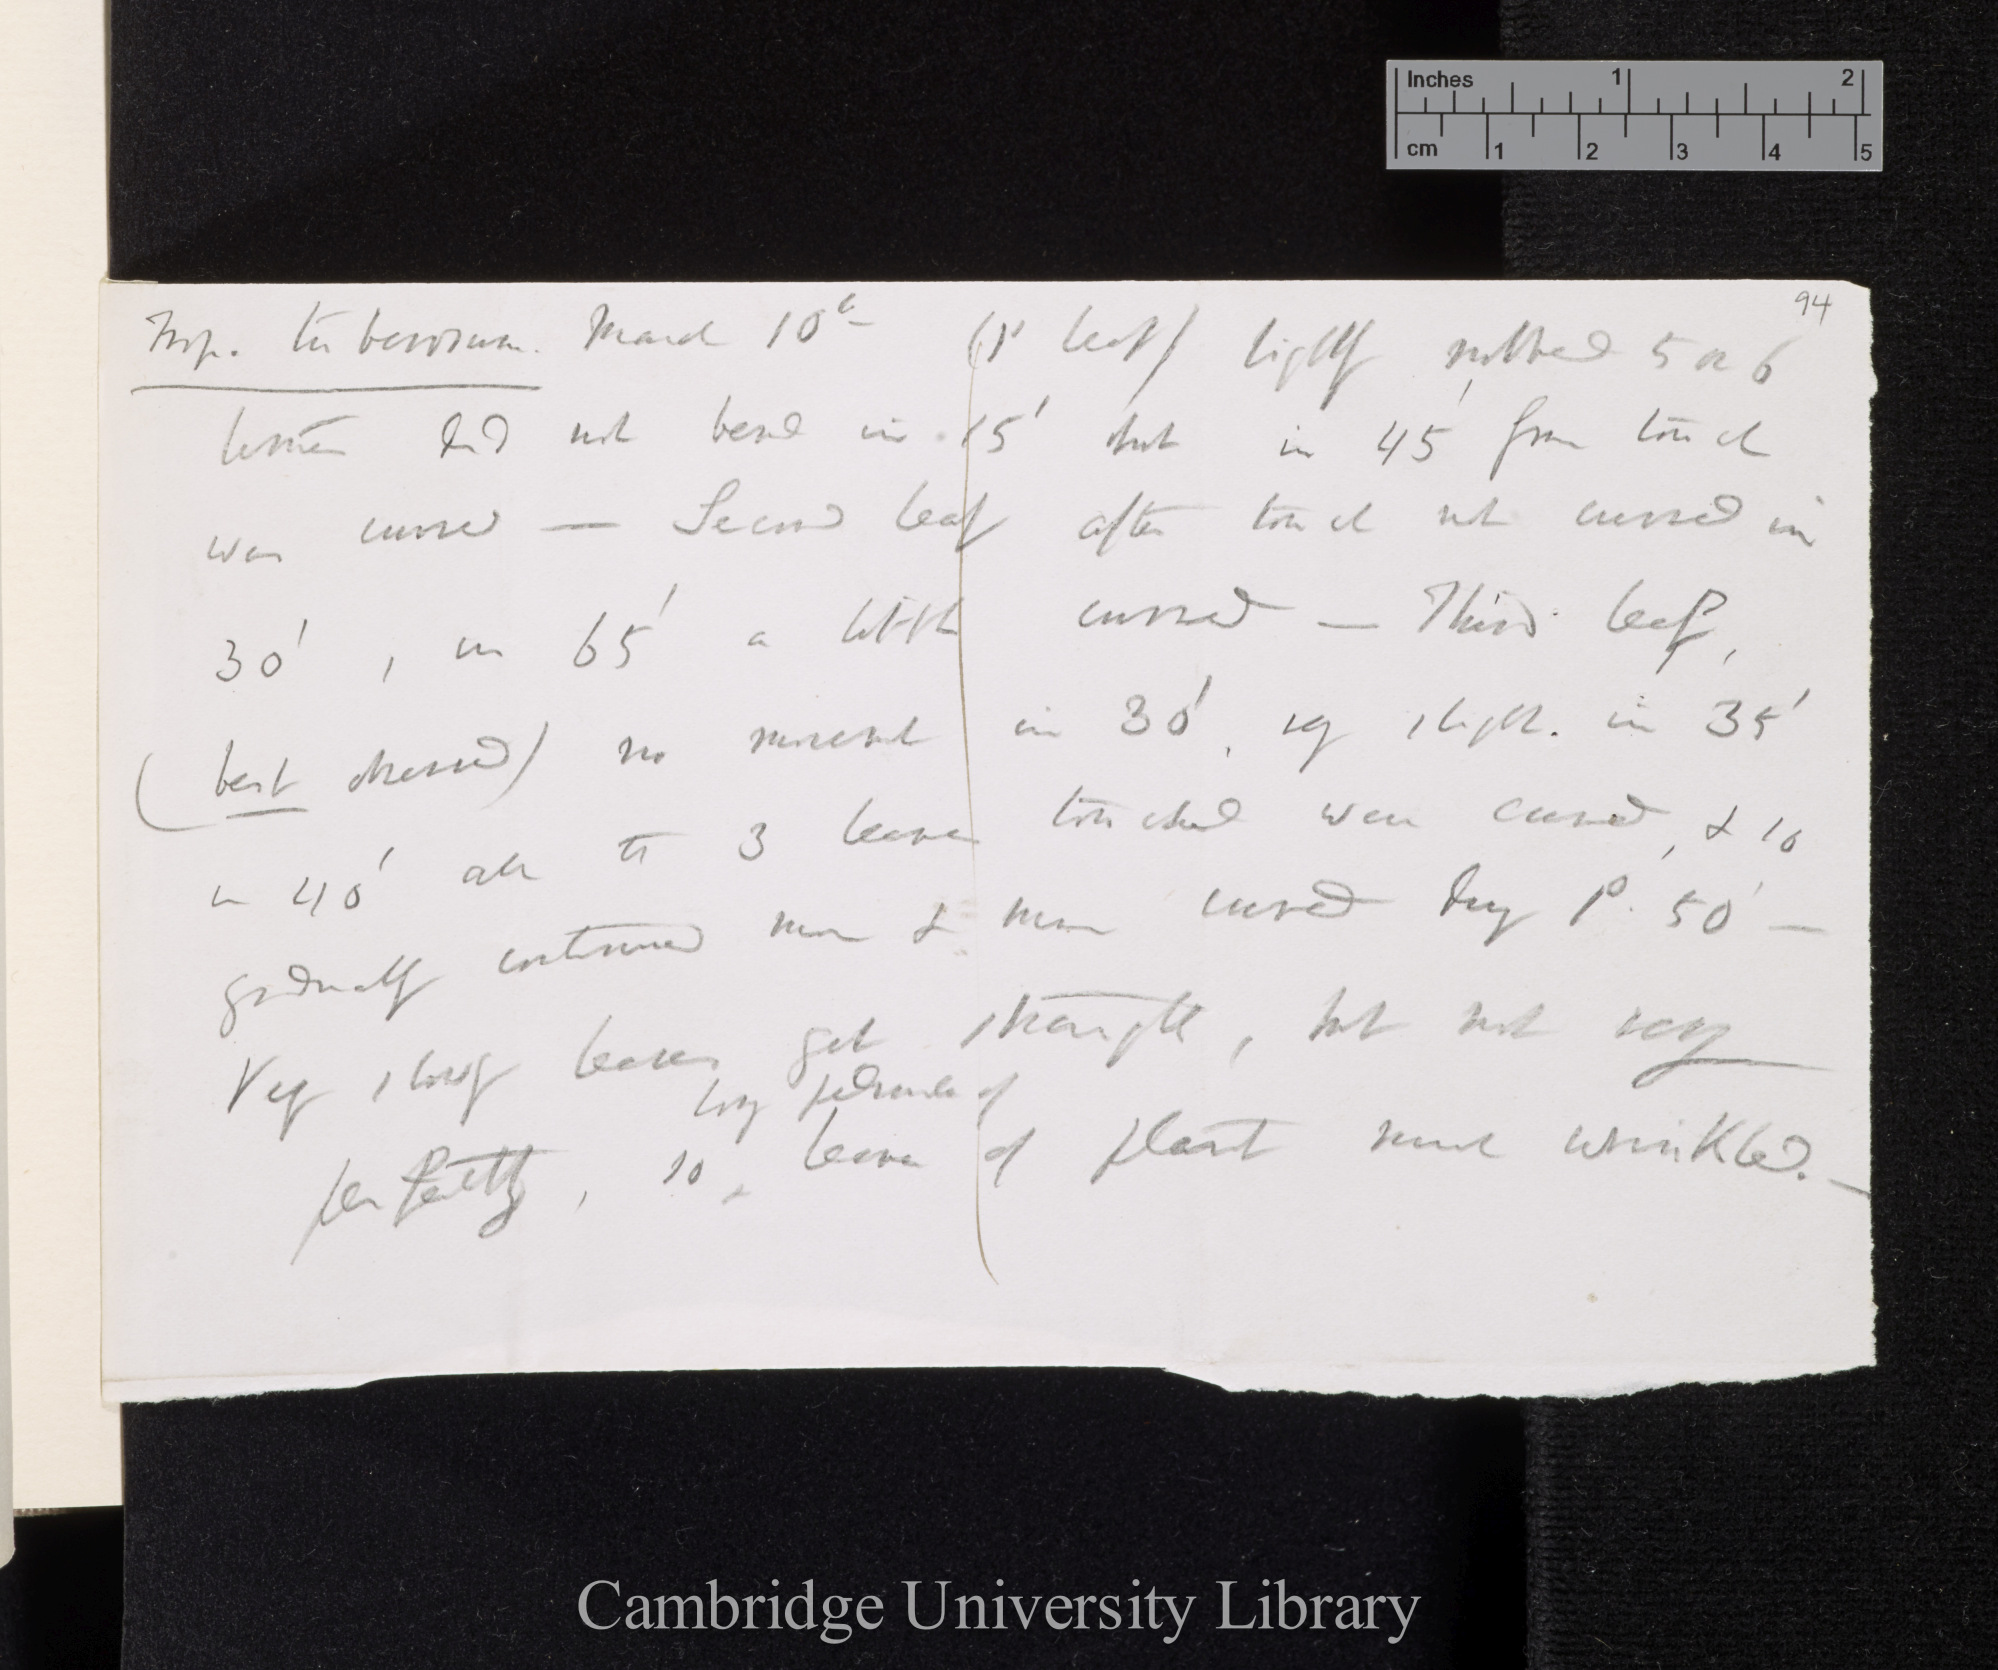 Inches 1 2
cm 1 2 3 4 5
94
Trop. tuberosum. March 10th (1st leaf) lightly rubbed 5 or 6
times did not bend in 15' but in 45' from touch
was curved — Second leaf after touch not curved in
30', in 65' a little curved — Third leaf,
(best observed) no movement in 30', vy slight. in 35'
in 40' all the 3 leaves touched were curved, & so
gradually continued more & more curved 1°. 50' —
Very slowly leaves get straight, but not very
long peduncle of
perfectly, so leaves of plant much wrinkled. —
Cambridge University Library